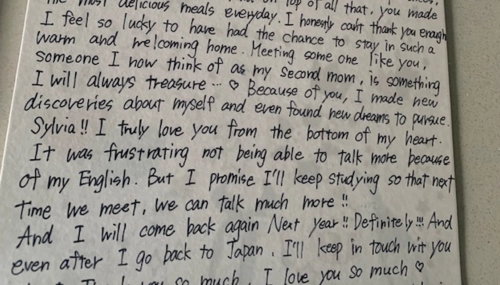 the most delicious meals everyday. I honestly can't thank you enough
I feel so lucky to have had the chance to stay in such a
warm and welcoming home. Meeting some one like you,
someone I now think of as my second mom, is something
I will always treasure... ♡ Because of you, I made new
discoveries about myself and even found new dreams to pursue.
Sylvia!! I truly love you from the bottom of my heart.
It was frustrating not being able to talk more because
of my English. But I promise I'll keep studying so that next
time we meet, we can talk much more!!
And I will come back again Next year!! Definitely!!! And
even after I go back to Japan, I'll keep in touch wit you
so much. I love you so much ♡